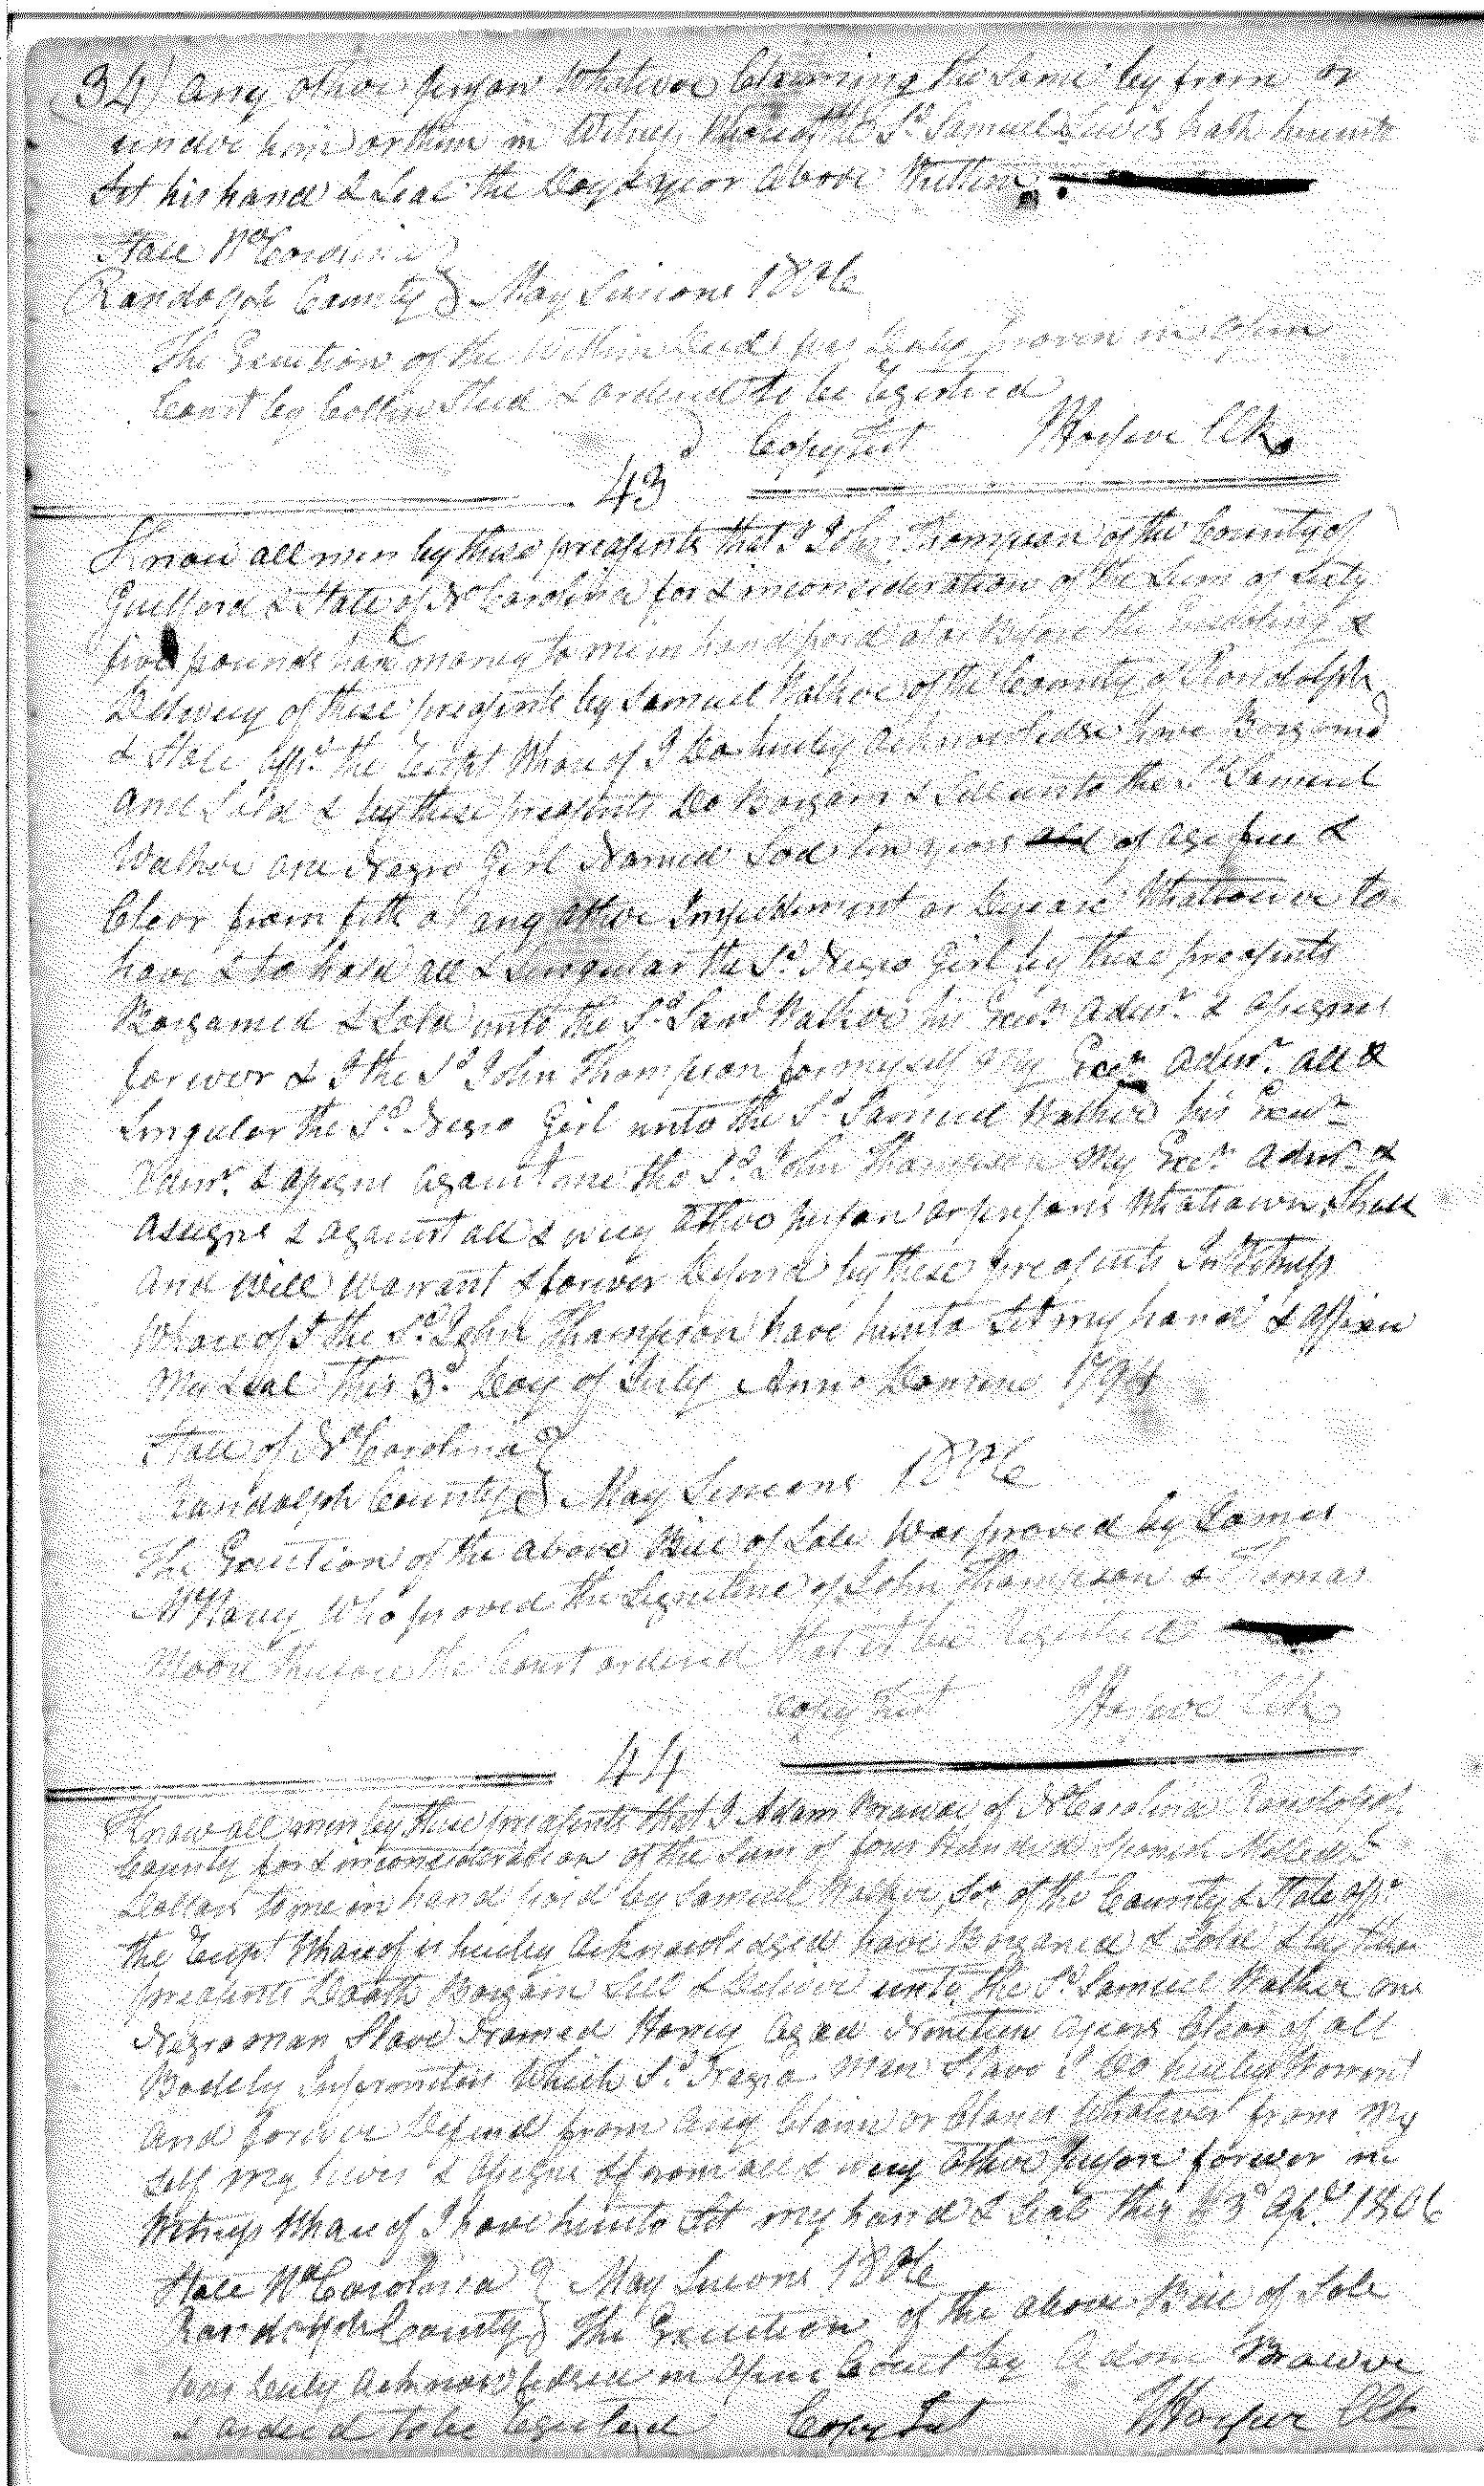 34) Any other person Whatever Claiming the Same by from or
under him or them in Witness Whareof the Sd. Samuel Lewis hath hereunto
Set his hand & Seal the Day & year above Written
State No Carolina
Randolph County May Sessions 1806
The Execution of the Within Deed was Duly proven in Open
Court by Collin Steed & ordered to be Registered
Copy Test J Harper Clk
43
Know all men by these preasents that I John Thompson of the County of
Guilford & State of No Carolina for & inconsideration of the Sum of Sixty
five pounds hard money to me in hand paid at or Before the Ensealing &
Delivery of these preasents by Samuel Walker of the County of Randolph
& State Affd. the Receipt Whareof I Do hereby Acknowledge have Bargained
And Sold & by these preasents Do Bargain & Sell unto the Sd Samuel
Walker one Negro Girl Named ten years old of age free &
Clear from or any other Impediment or Whatsoever to
have & to hold all & Singular the Sd. Negro Girl by these preasents
Bargained & Sold unto the Sd. Saml Walker his Exrs. Admr. & Assigns
forever & I the Sd John Thompson for myself & My Exrs Admr. all &
Singular the Sd. Negro Girl unto the Sd Samuel Walker his Exrs
Admr. & Assigns against me the Sd. John Thompson My Exrs. Admr. &
Assigns & against all & every other person or persons Whatsoever Shall
And Will Warrant & forever Defend by these preasents In Witness
Whareof I the Sd. John Thompson have hereunto Set my hand & Affixed
My Seal this 3d. Day of July Anno Domine 1794
State of No Carolina
Randolph County May Sessions 1806
The Execution of the above Bill of Sale Was proved by James
Who proved the Signature of John Thompson & Thomas
therefore the Court ordered that it be Registered
Copy Test J Harper Clk
44
Know all men by these preasents that I Adam Brower of No Carolina Randolph
County for & inconsideration of the Sum of four Hundred Spanish Milled
Dollars to me in hand paid by Samuel Walker Sr. of the County & State affd
the Receipt Whareof is hereby Acknowledged have Bargained & Sold & by these
preasents Doath Bargain Sell & Deliver unto the Sd. Samuel Walker one
Negro man Slave Named Harvey Aged Nineteen years Clear of all
Bodely Infirmities Which Sd. Negro Man Slave I Do hereby Warrant
And forever Defend from Any Claim or Claims Whatever from My
Self my heirs & Assigns & from all & every other person forever in
Witness Whareof I have hereunto Set my hand & Seal this 3d Apl. 1806
State No Carolina May Sessions 1806
Randolph County The Execution of the above Bill of Sale
was Duly Acknowledged in Open Court by Adam Brower
& ordered to be Registered Copy Test J Harper Clk